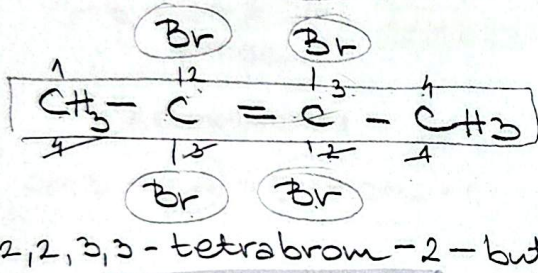 Br Br
1 2 3 4
CH3 - C = C - CH3
4 3 2 1
Br Br
2,2,3,3-tetrabrom-2-but